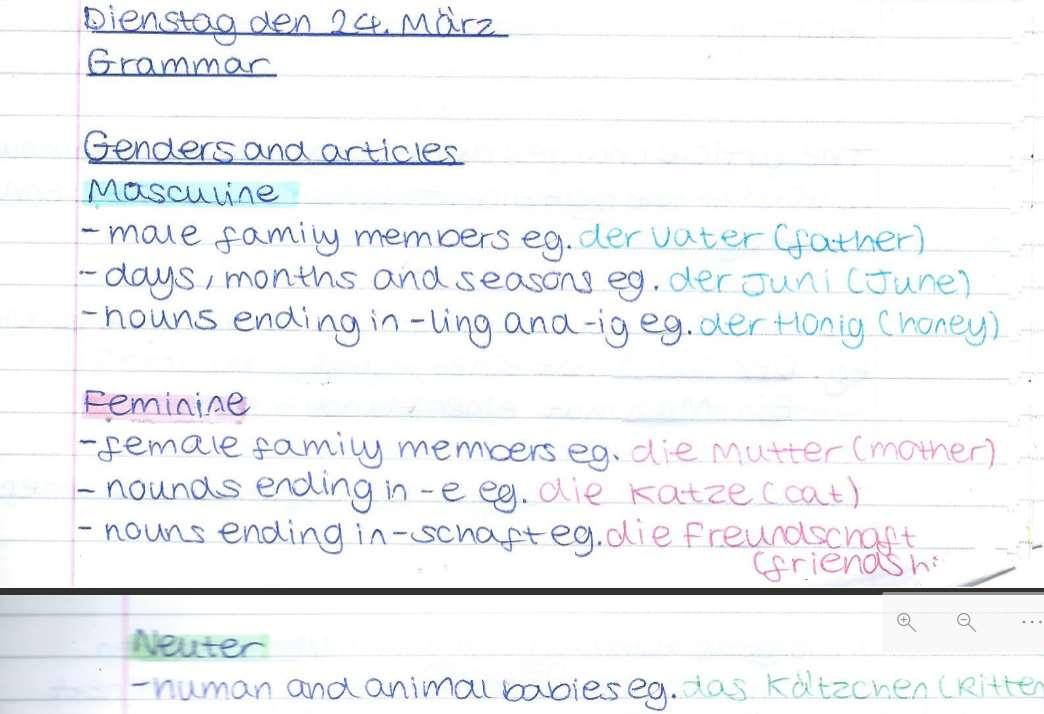 Dienstag den 24. März
Grammar
Genders and articles
Masculine
- male family members eg. der Vater (father)
- days, months and seasons eg. der Juni (June)
- nouns ending in -ling and -ig eg. der Honig (honey)
Feminine
- female family members eg. die Mutter (mother)
- nounds ending in -e eg. die Katze (cat)
- nouns ending in -schaft eg. die Freundschaft
(friendsh
Neuter
- human and animal babies eg. das Kätzchen (Kitten